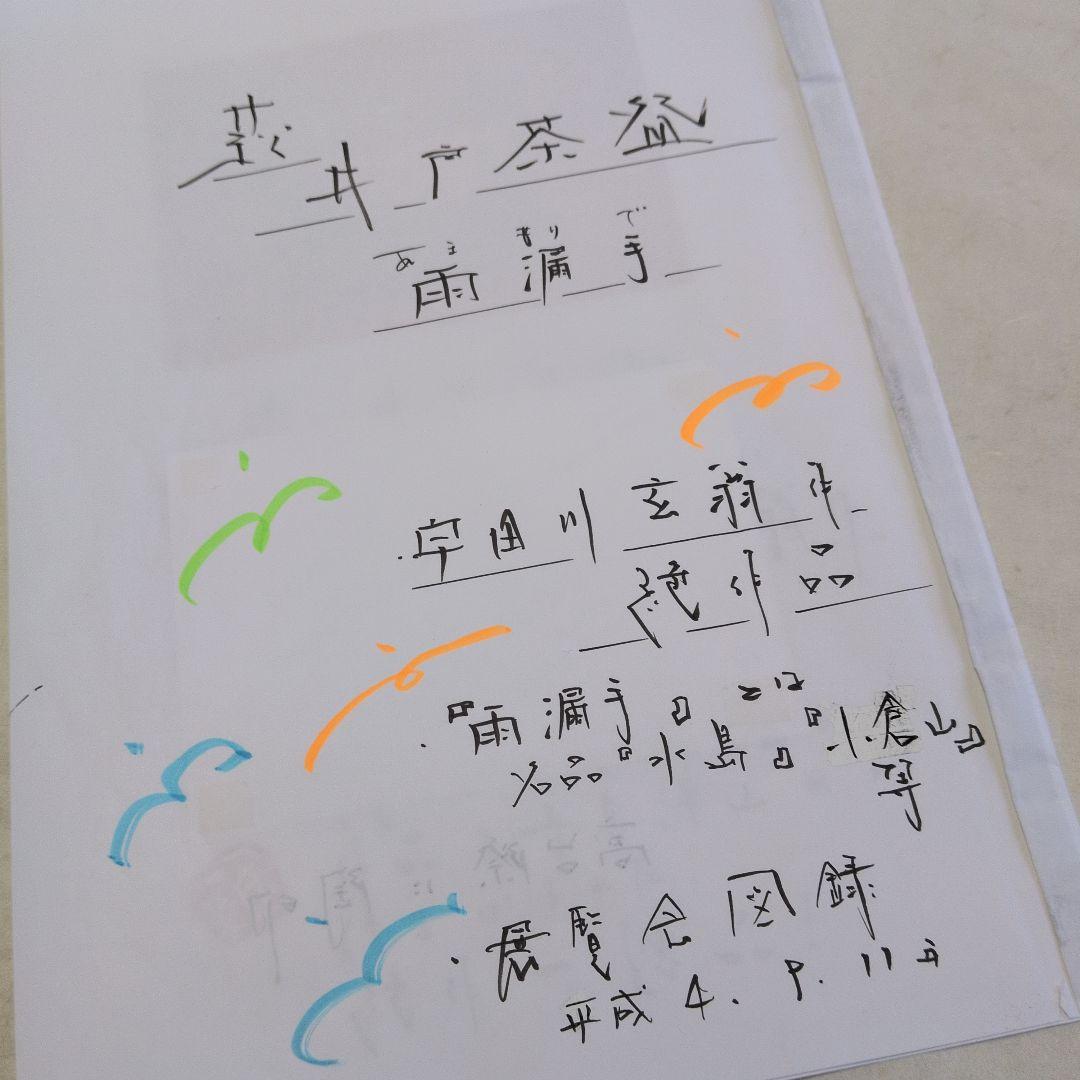 井戸茶盌
あま もり で
雨漏手
・宇田川玄翁作
作品
・『雨漏手』とは
名品『水島』『小倉山』
等
・展覧会図録
平成4.9.11
高台際に陶印